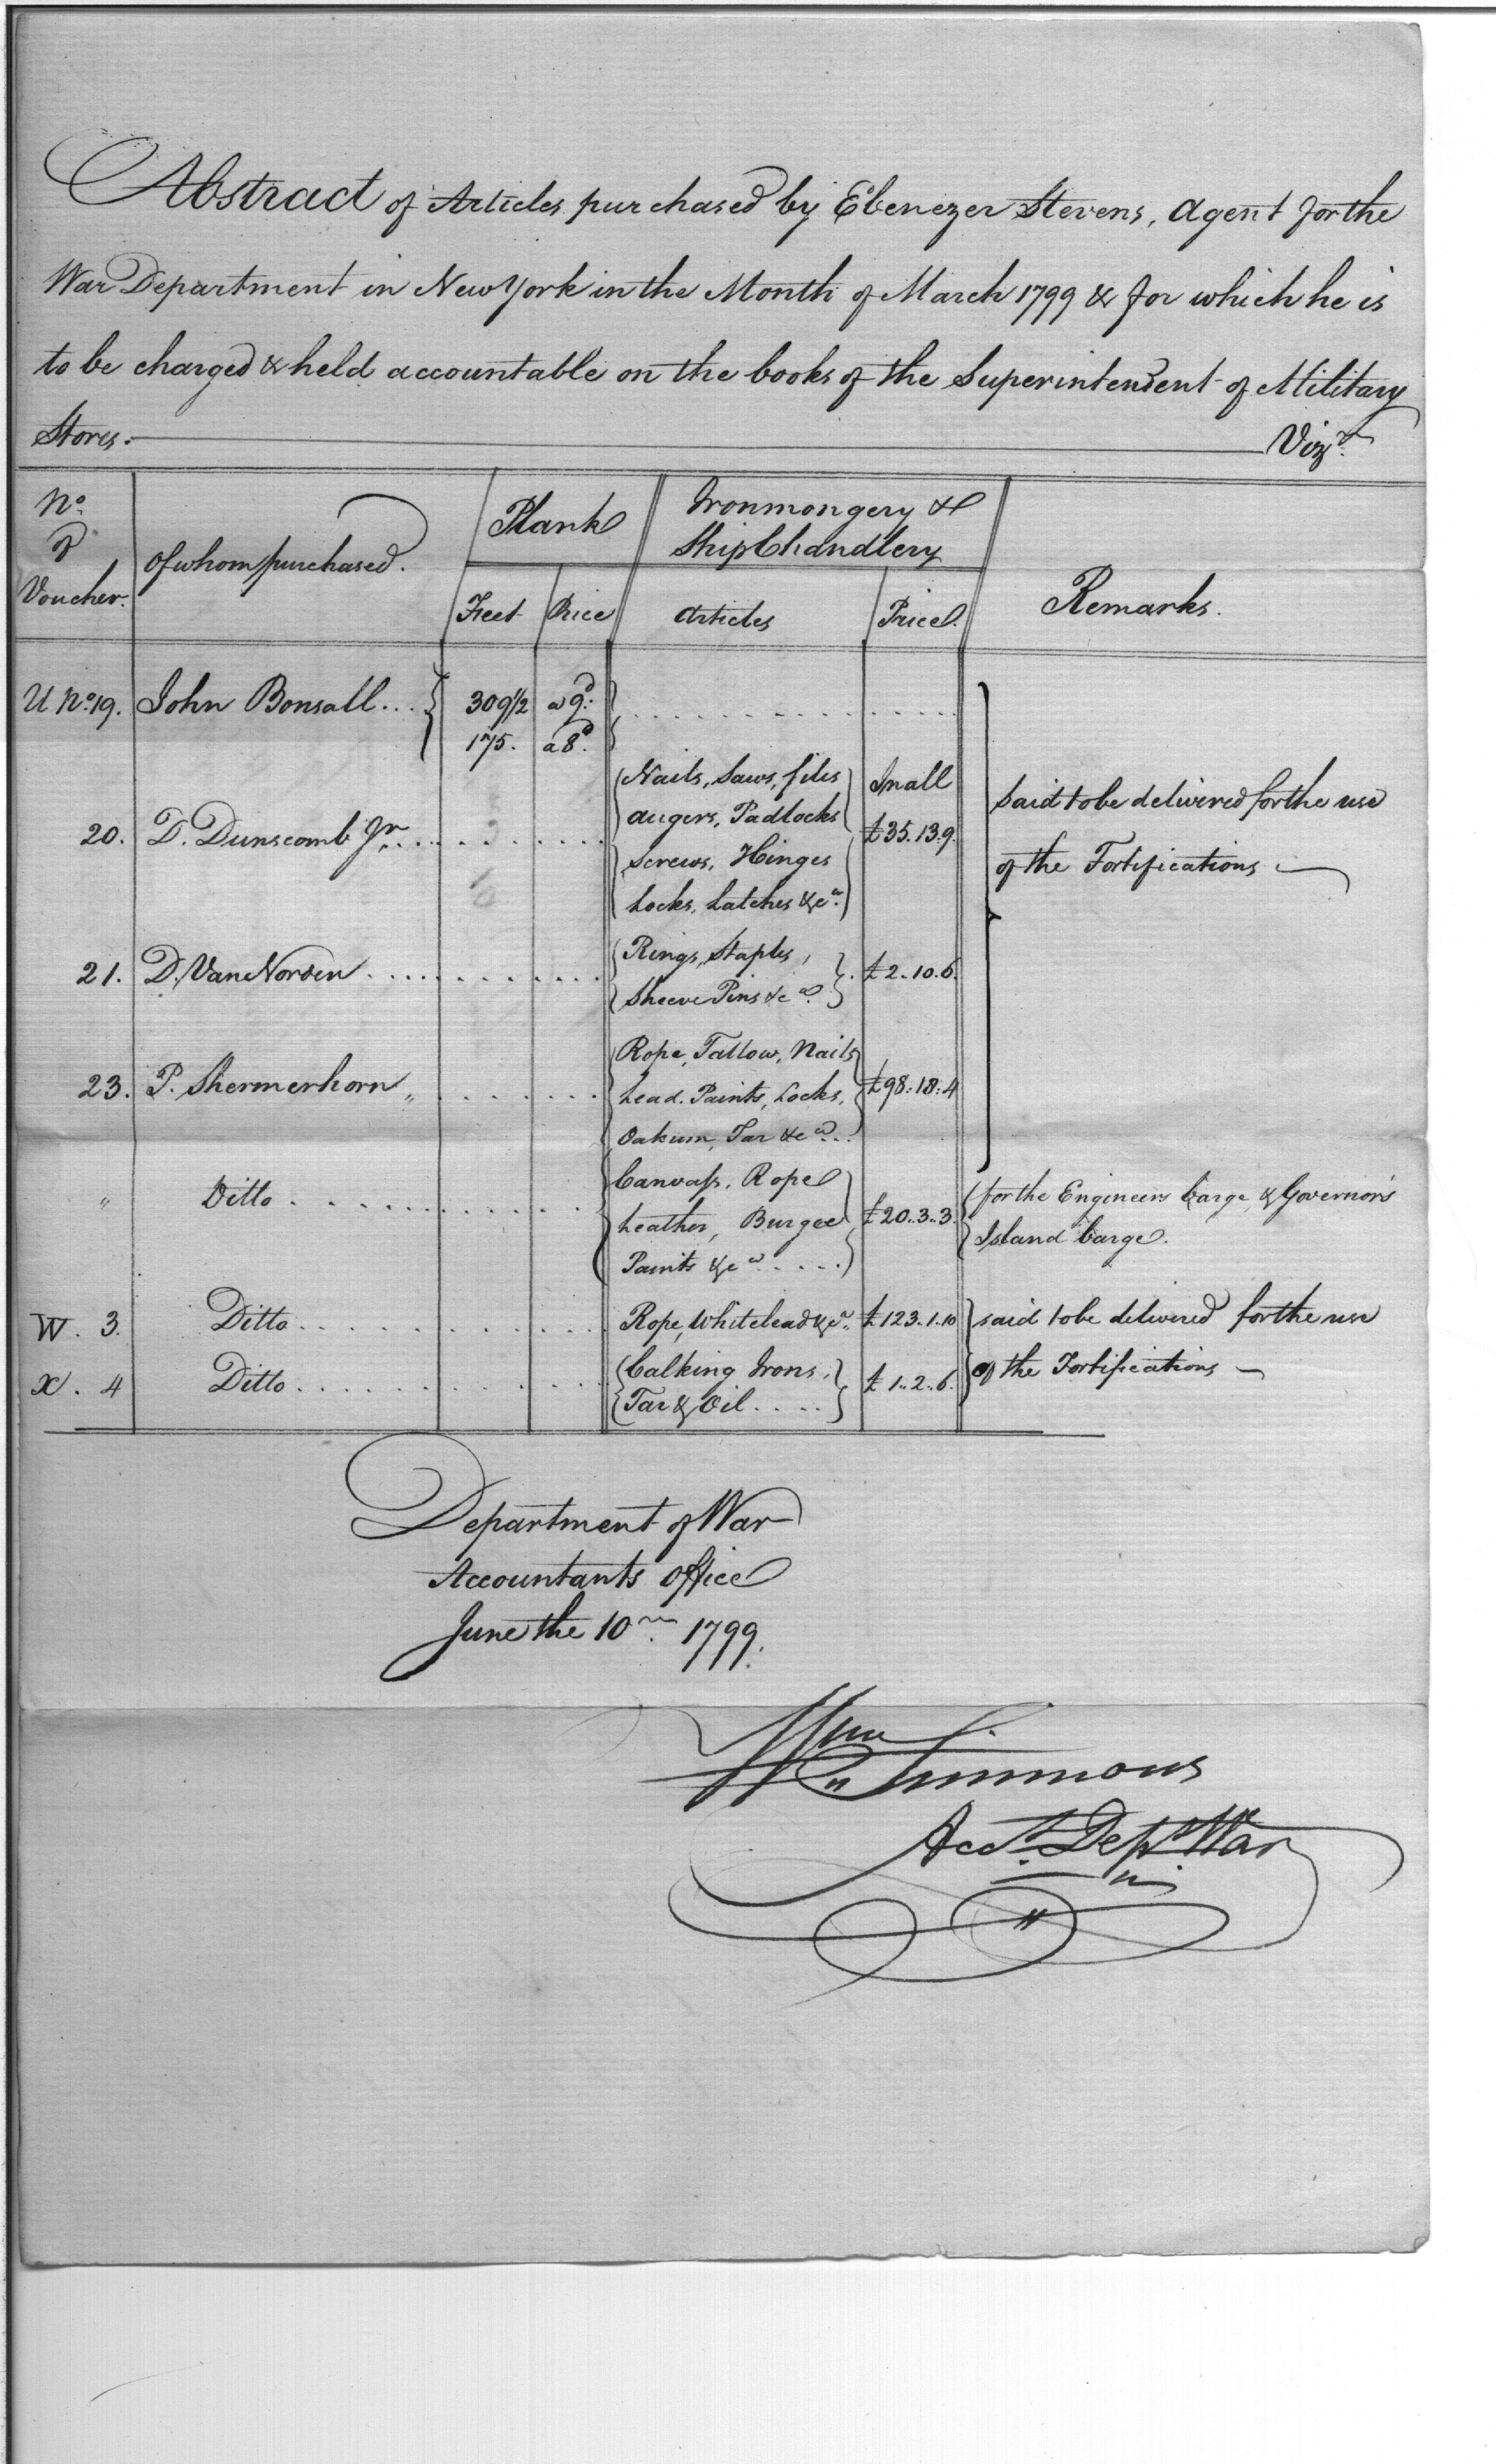 Abstract of Articles purchased by Ebenezer Stevens, Agent for the
War Department in New York in the Month of March 1799 & for which he is
to be charged & held accountable on the books of the Superintendent of Military
Stores. Vizt.
No.
Voucher.
Of whom purchased.
Plank
Feet Price
Ironmongery &
Ship Chandlery
Articles Price
Remarks.
U No. 19. John Bonsall... 309 1/2 a 9d.
175. a 8d.
20. D. Dunscomb Jr.... Nails, Saws, files In all
augers, Padlocks £35.13.9.
Screws, Hinges
Locks, Latches &ca.
said to be delivered for the use
of the Fortifications
21. D. Van Norden.... Rings, Staples, £2..10.6.
Sheeve Pins &ca.
23. P. Shermerhorn Rope, Tallow, Nails £98:18:4
Lead. Paints, Locks,
Oakum, Tar &ca...
" Ditto.... Canvass, Rope £20..3..3. for the Engineers barge, & Governor's
Leather, Burgee Island barge.
Paints &ca.....
W. 3. Ditto.... Rope, White lead &ca.. £123.1.10 said to be delivered for the use
X. 4 Ditto.... Calking Irons, £1..2..6. of the Fortifications
Tar & Oil....
Department of War
Accountants Office
June the 10th. 1799.
Wm Simmons
Acct. Dept War